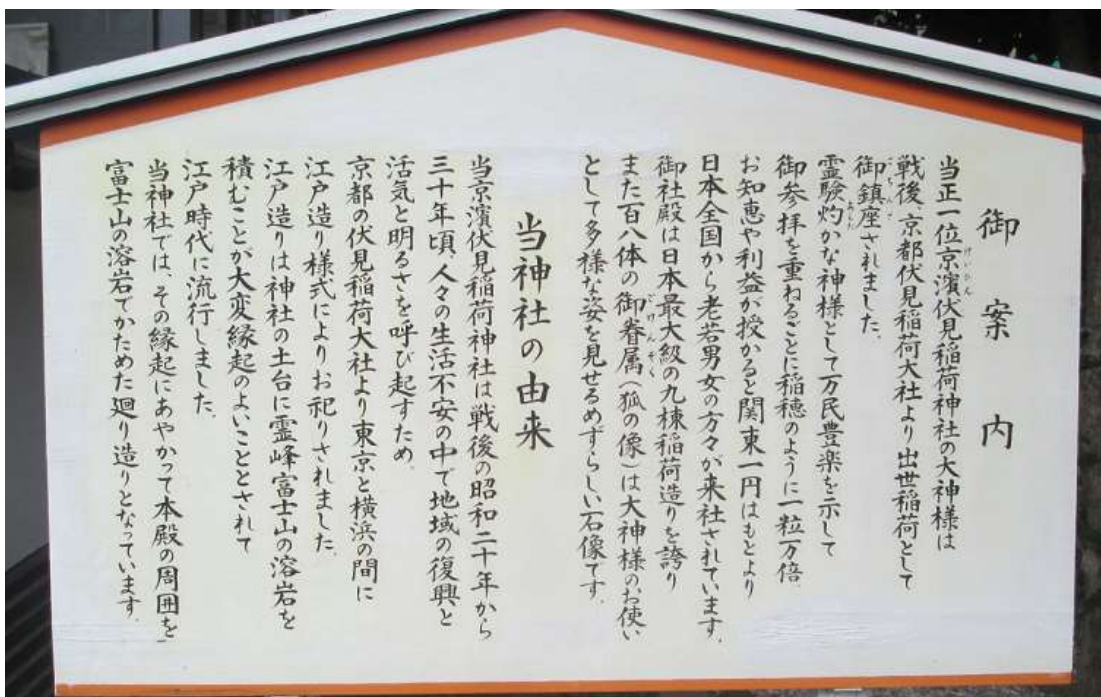 御案内
当正一位京濱伏見稲荷神社の大神様は
けいひん
戦後、京都伏見稲荷大社より出世稲荷として
御鎮座されました。
ごちんざ
霊験灼かな神様として万民豊楽を示して
御参拝を重ねるごとに稲穂のように一粒万倍
お知恵や利益が授かると関東一円はもとより
日本全国から老若男女の方々が来社されています。
御社殿は日本最大級の九棟稲荷造りを誇り
また百八体の御眷属(狐の像)は大神様のお使い
ごけんぞく
として多様な姿を見せるめずらしい石像です。
当神社の由来
当京濱伏見稲荷神社は戦後の昭和二十年から
三十年頃、人々の生活不安の中で地域の復興と
活気と明るさを呼び起すため、
京都の伏見稲荷大社より東京と横浜の間に
江戸造り様式によりお祀りされました。
江戸造りは神社の土台に霊峰富士山の溶岩を
積むことが大変縁起のよいこととされて
江戸時代に流行しました。
当神社では、その縁起にあやかって本殿の周囲を
富士山の溶岩でかためた廻り造りとなっています。